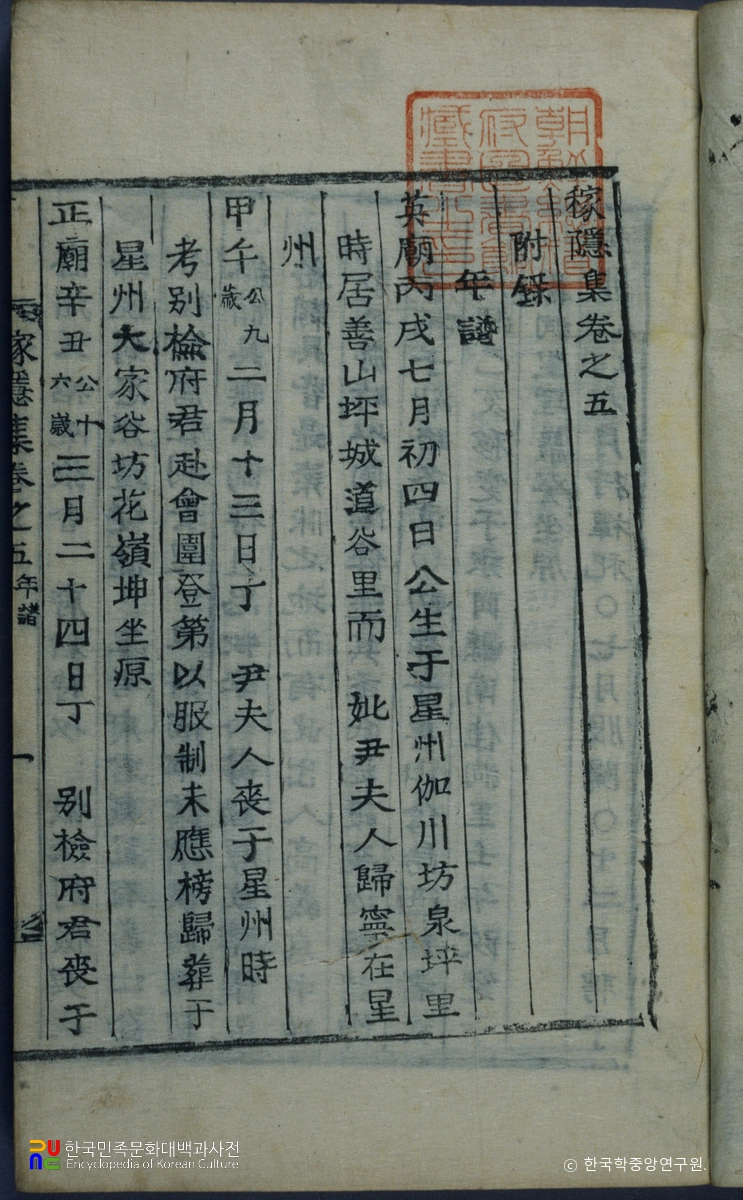 稼隱集卷之五
附錄
年譜
英廟丙戌七月初四日公生于星州伽川坊泉坪里
時居善山坪城道谷里而 妣尹夫人歸寧在星
州
甲午公九歲二月十三日丁 尹夫人喪于星州時
考別檢府君赴會圍登第以服制未應榜歸葬于
星州大家谷坊花嶺坤坐原
正廟辛丑公十六歲三月二十四日丁 別檢府君喪于
稼隱集卷之五 年譜 一
한국민족문화대백과사전
Encyclopedia of Korean Culture
© 한국학중앙연구원.